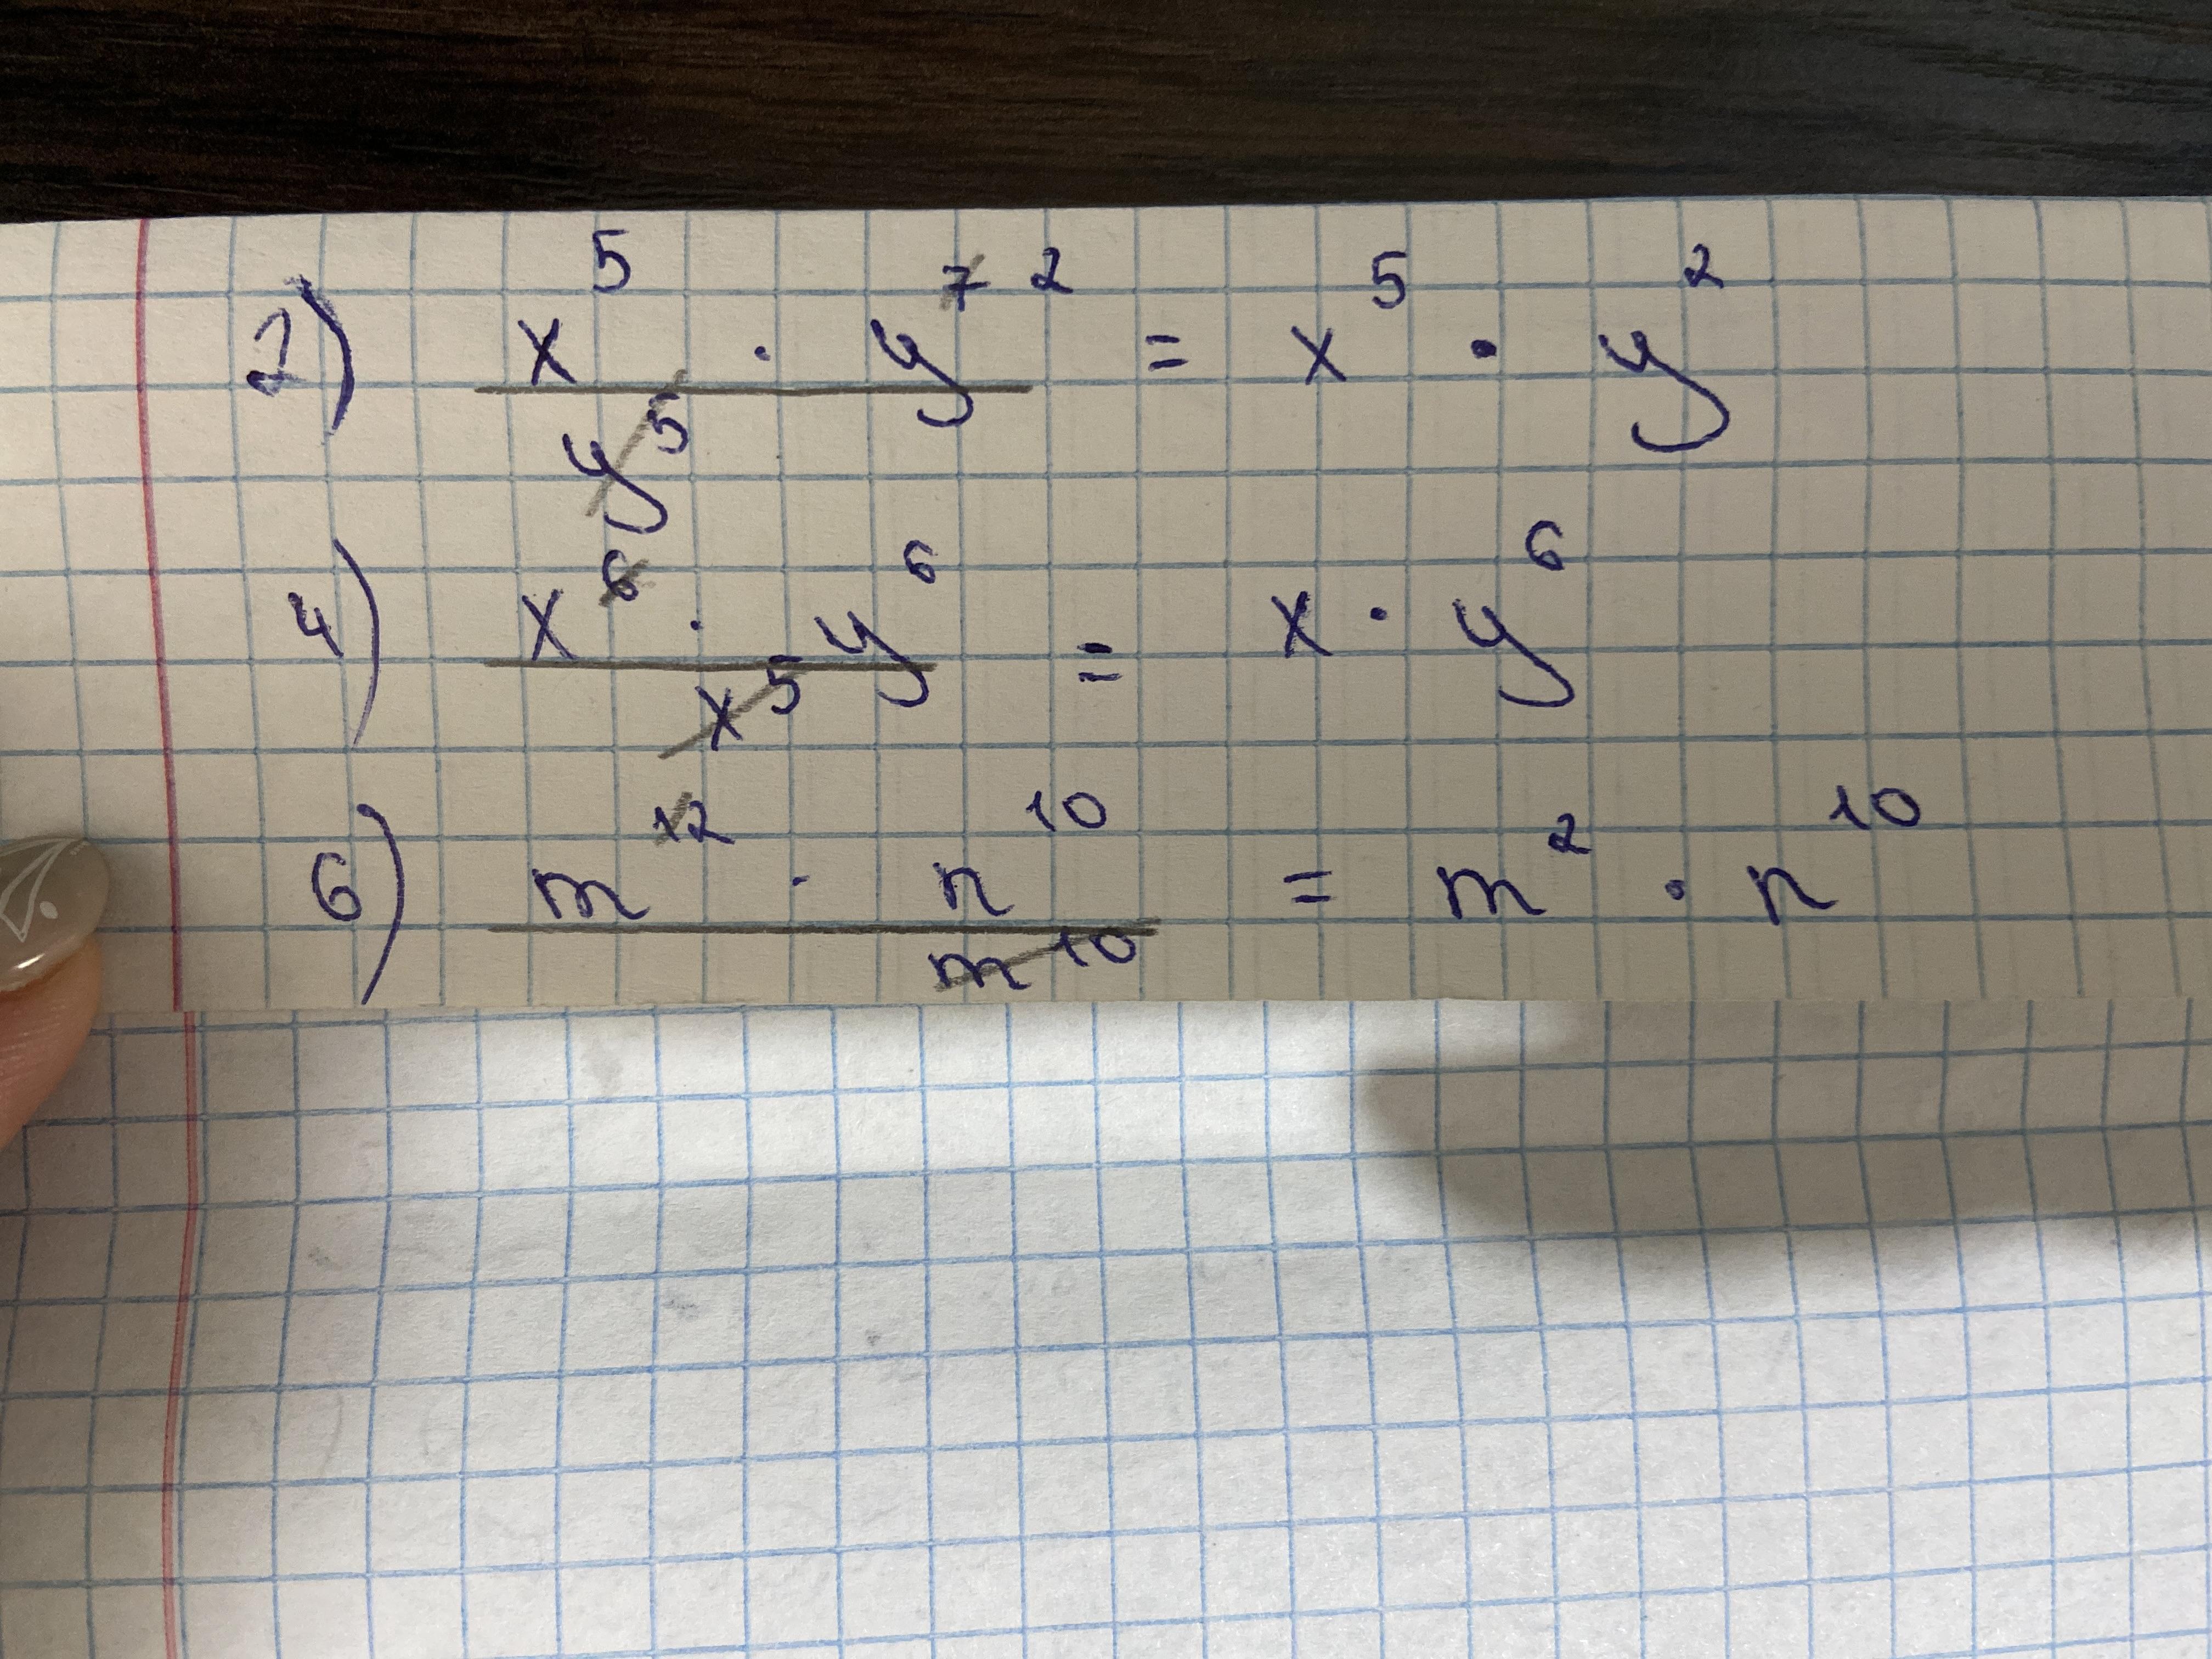 2) x⁵ · y⁷ ² / y⁵ = x⁵ · y²
4) x⁶ · y⁶ / x⁵ = x · y⁶
6) m¹² · n¹⁰ / m¹⁰ = m² · n¹⁰